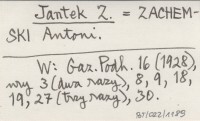 Jantek Z. = ZACHEM-
SKI Antoni.
W: Gaz. Podh. 16 (1928),
nry 3 (dwa razy), 8, 9, 18,
19, 27 (trzy razy), 30.